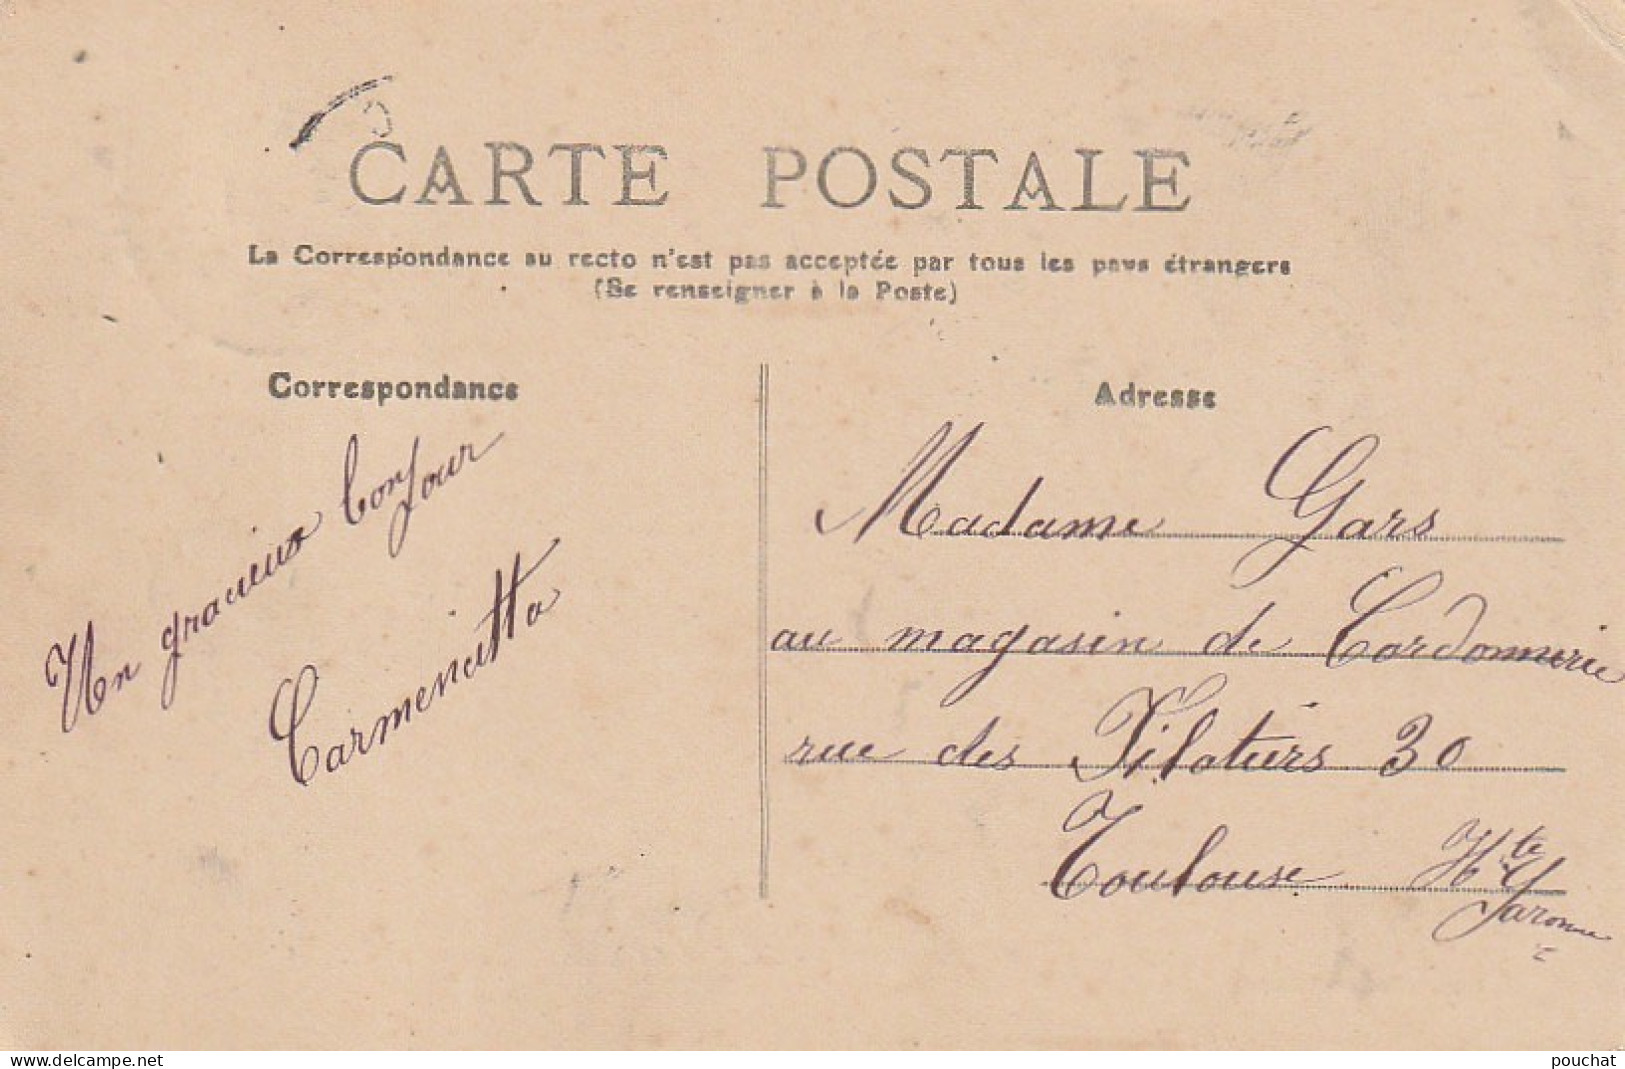 CARTE POSTALE
La Correspondance au recto n'est pas acceptée par tous les pays étrangers
(Se renseigner à la Poste)
Correspondance
Un gracieux bonjour
Carmenatta
Adresse
Madame Gars
au magasin de Cordonnerie
rue des Filatiers 30
Toulouse Hte
Garonne
www.delcampe.net
pouchat